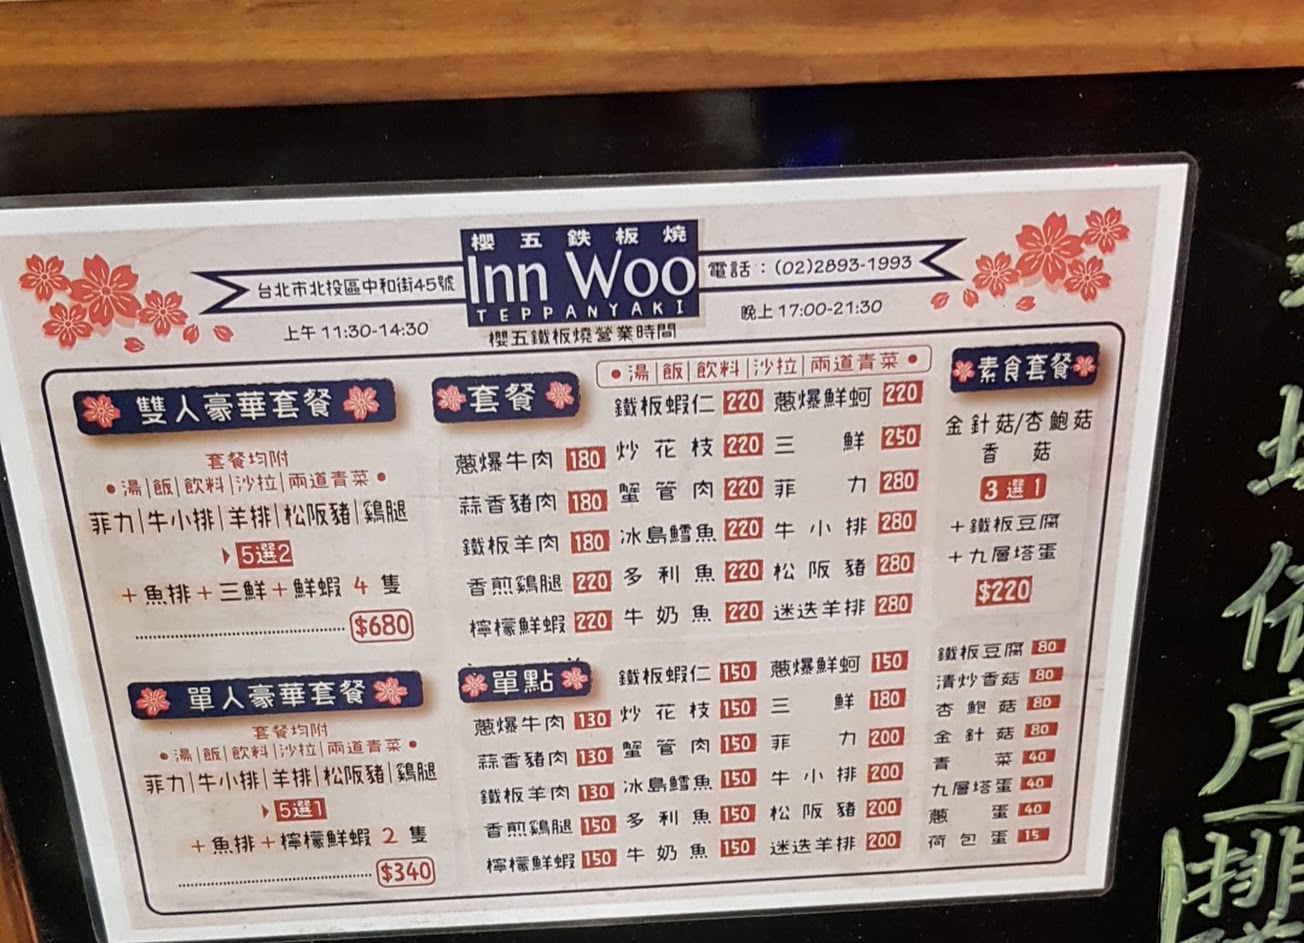 櫻五鉄板燒
Inn Woo
TEPPANYAKI
台北市北投區中和街45號
電話：(02)2893-1993
上午 11:30-14:30
櫻五鐵板燒營業時間
晚上 17:00-21:30
雙人豪華套餐
套餐均附
•湯|飯|飲料|沙拉|兩道青菜•
菲力|牛小排|羊排|松阪豬|雞腿
5選2
+魚排+三鮮+鮮蝦 4 隻
$680
單人豪華套餐
套餐均附
•湯|飯|飲料|沙拉|兩道青菜•
菲力|牛小排|羊排|松阪豬|雞腿
5選1
+魚排+檸檬鮮蝦 2 隻
$340
套餐
•湯|飯|飲料|沙拉|兩道青菜•
蔥爆牛肉 180
蒜香豬肉 180
鐵板羊肉 180
香煎雞腿 220
檸檬鮮蝦 220
鐵板蝦仁 220
炒花枝 220
蟹管肉 220
冰島鱈魚 220
多利魚 220
牛奶魚 220
蔥爆鮮蚵 220
三鮮 250
菲力 280
牛小排 280
松阪豬 280
迷迭羊排 280
單點
蔥爆牛肉 130
蒜香豬肉 130
鐵板羊肉 130
香煎雞腿 150
檸檬鮮蝦 150
鐵板蝦仁 150
炒花枝 150
蟹管肉 150
冰島鱈魚 150
多利魚 150
牛奶魚 150
蔥爆鮮蚵 150
三鮮 180
菲力 200
牛小排 200
松阪豬 200
迷迭羊排 200
素食套餐
金針菇/杏鮑菇
香菇
3選1
+鐵板豆腐
+九層塔蛋
$220
鐵板豆腐 80
清炒香菇 80
杏鮑菇 80
金針菇 80
青菜 40
九層塔蛋 40
蔥蛋 40
荷包蛋 15
依
序
排